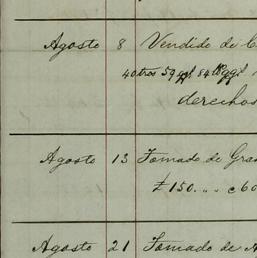 Agosto 8 Vendido de C
derechos
Agosto 13 Tomado de Gra
£150 . . . c60
Agosto 21 Tomado de A